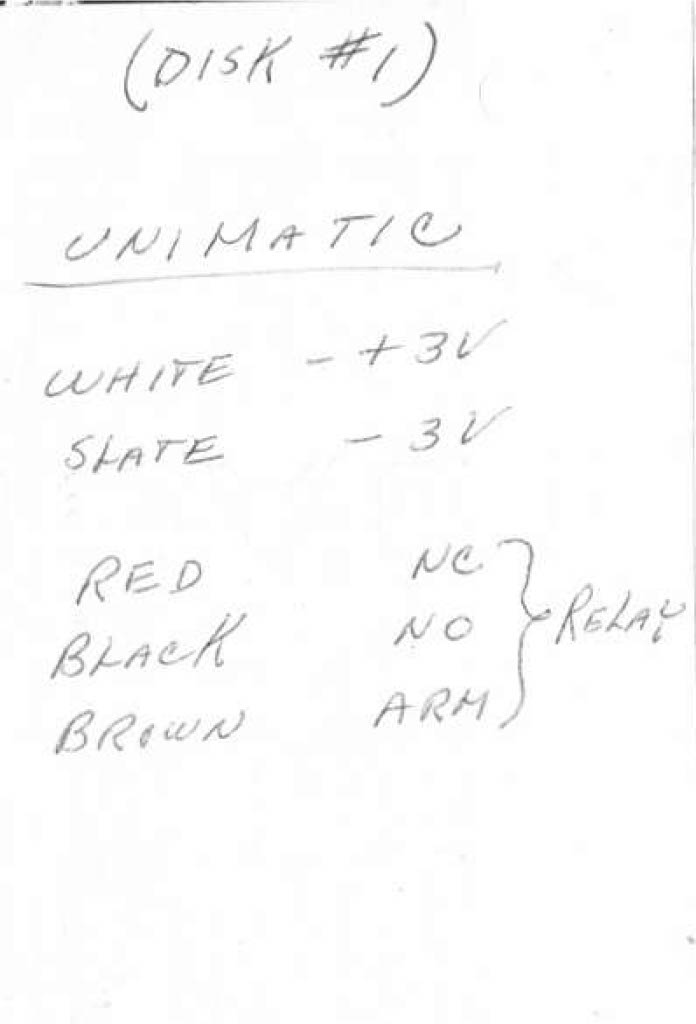 (DISK #1)
UNIMATIC
WHITE - + 3V
SLATE - 3V
RED NC
BLACK NO } RELAY
BROWN ARM